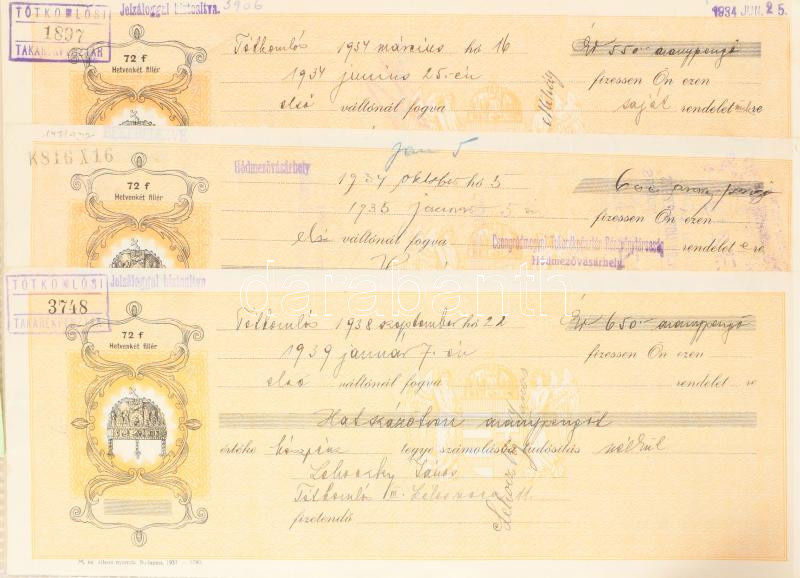 TÓTKOMLÓSI
1897
TAKARÉKPÉNZTÁR
Jelzáloggal biztosítva.
3906
1934 JUN. 25.
72 f
Hetvenkét fillér
Tótkomlós 1934 március hó 16 Ér 550 aranypengő
1934 junius 25-én fizessen Ön ezen
első váltónál fogva saját rendelet re
Mihály
K816 X16
Hódmezővásárhely
jan 5
72 f
Hetvenkét fillér
1934 október hó 3
1935 január 5 fizessen Ön ezen
első váltónál fogva rendelet e re
Csongrádmegyei Takarékpénztár Részvénytársaság
Hódmezővásárhely.
TÓTKOMLÓSI
3748
TAKARÉKPÉNZTÁR
Jelzáloggal biztosítva
72 f
Hetvenkét fillér
Tótkomlós 1938 szeptember hó 22 Ér 650 aranypengő
1939 január 7-én fizessen Ön ezen
első váltónál fogva rendelet re
Hatszázötven aranypengőt
értéke készpénz tegye számolásba tudósítás nélkül
Lehoczky János
Tótkomlós III.
fizetendő
M. kir. állami nyomda. Budapest, 1937
darabanth